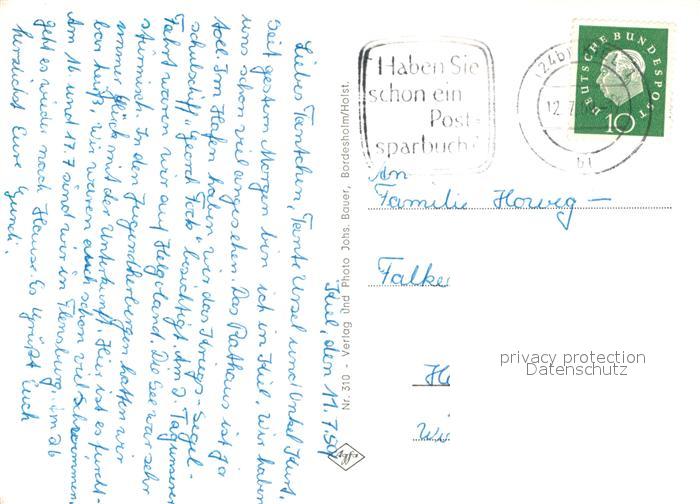 Kiel, den 11.7.59
Liebes Tantchen, Tante Ursel und Onkel Kurt.
Seit gestern Morgen bin ich in Kiel. Wir haben
uns schon viel angesehen. Das Rathaus ist ja
toll. Im Hafen haben wir das Kriegs-Segel-
schulschiff "Georch Fock" besichtigt. Am 2. Tag unserer
Fahrt waren wir auf Helgoland. Die See war sehr
stürmisch. In den Jugendherbergen hatten wir
immer Glück mit der Unterkunft. Hier ist es furcht-
bar heiß, wir waren auch schon viel Schwimmen.
Am 16 und 17.7 sind wir in Flensburg. Am 26
geht es wieder nach Hause. Es grüßt Euch
herzlichst Eure Gundi.
Nr. 310 - Verlag und Photo Johs. Bauer, Bordesholm/Holst.
Agfa
Haben Sie
schon ein
Post-
sparbuch?
(24b) KIEL 1
12.7.
bl
DEUTSCHE BUNDESPOST
10
An
Familie Horweg -
Falke
H
Wi
privacy protection
Datenschutz